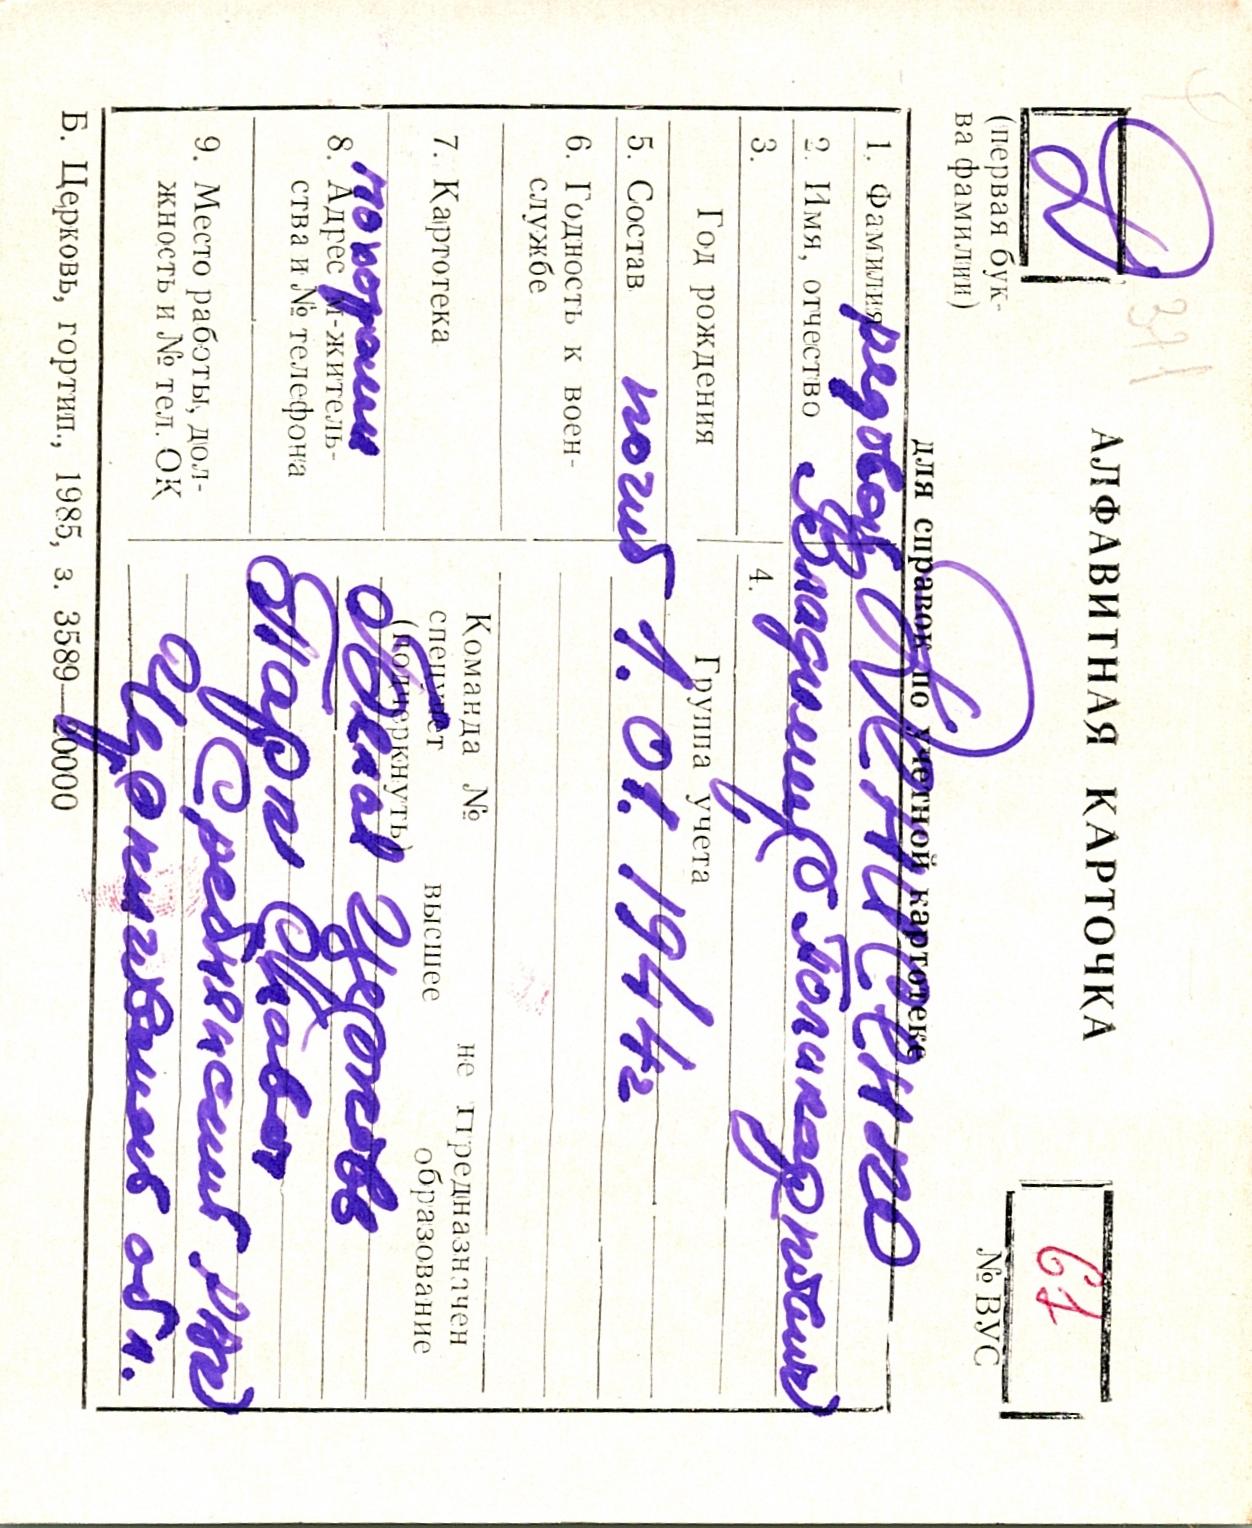 АЛФАВИТНАЯ КАРТОЧКА
для справок по учетной картотеке
Д
(первая бук-
ва фамилии)
371
61
№ ВУС
1. Фамилия
рядовой
2. Имя, отчество
Владимир Поликарпович
3.
Год рождения
4.
Группа учета
5. Состав
погиб 1.01.1944г
6. Годность к воен-
службе
7. Картотека
Команда №
не предназначен
спецучет
высшее
образование
(подчеркнуть)
похоронен
8. Адрес м-житель-
ства и № телефона
Церковь
9. Место работы, дол-
жность и № тел. ОК
Сребнянский р-н
Черниговской обл.
Б. Церковь, гортип., 1985, з. 3589—20000